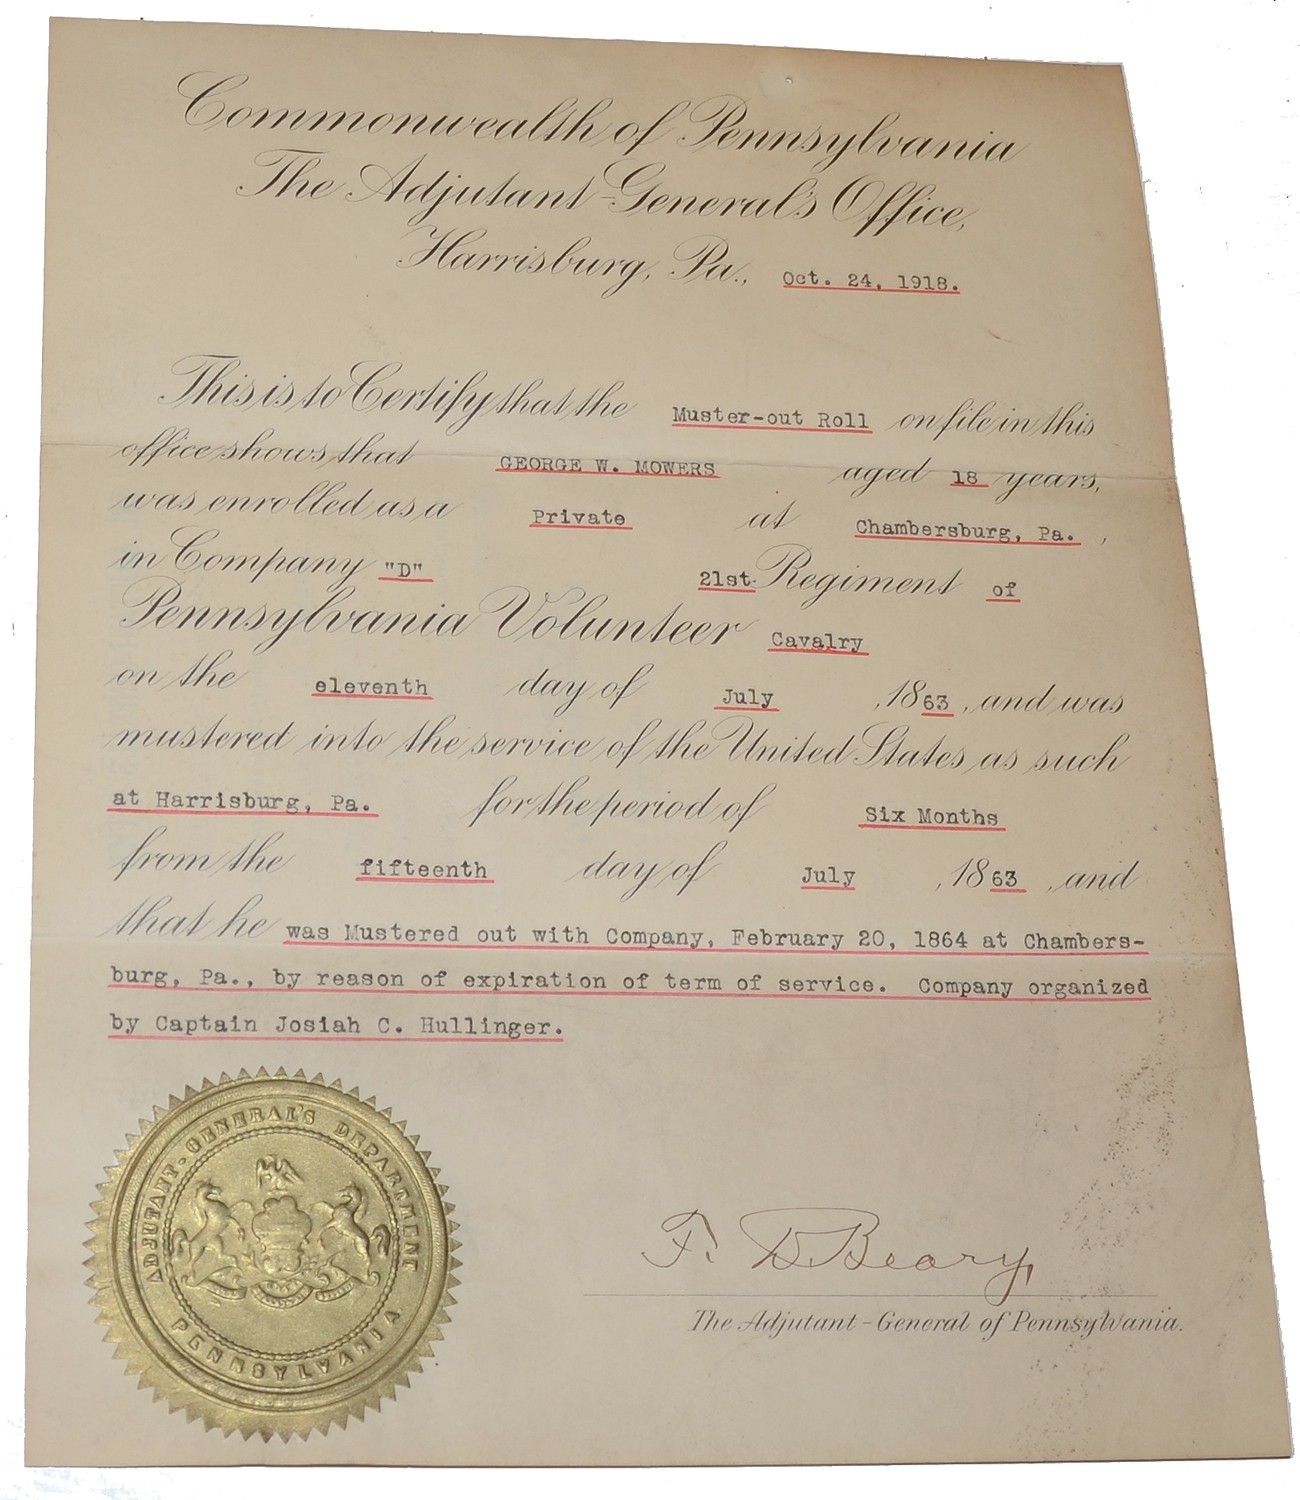 Commonwealth of Pennsylvania
The Adjutant-General's Office,
Harrisburg, Pa., Oct. 24, 1918.
This is to Certify that the Muster-out Roll on file in this
office shows that GEORGE W. MOWERS aged 18 years,
was enrolled as a Private at Chambersburg, Pa. ,
in Company "D" 21st. Regiment of
Pennsylvania Volunteer Cavalry
on the eleventh day of July , 1863 , and was
mustered into the service of the United States as such
at Harrisburg, Pa. for the period of Six Months
from the fifteenth day of July , 1863 , and
that he was Mustered out with Company, February 20, 1864 at Chambers-
burg, Pa., by reason of expiration of term of service. Company organized
by Captain Josiah C. Hullinger.
ADJUTANT-GENERAL'S DEPARTMENT
PENNSYLVANIA
F. D. Beary,
The Adjutant-General of Pennsylvania.